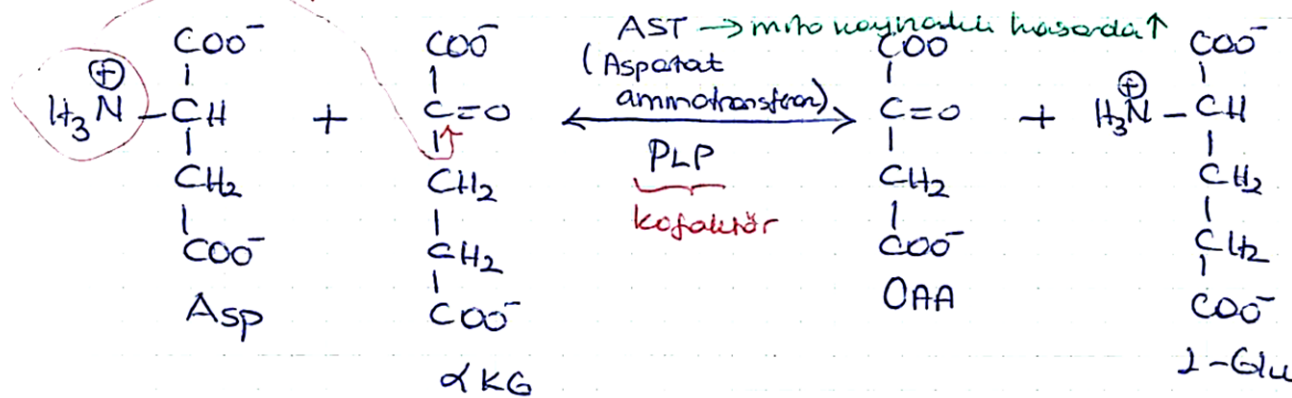 AST → mito kaynaklı hasarda ↑
(Aspatat
aminotransferaz)
PLP
kofaktör
COO⁻
H₃N⊕ – CH
CH₂
COO⁻
Asp
+
COO⁻
C=O
CH₂
CH₂
COO⁻
αKG
COO
C=O
CH₂
COO⁻
OAA
+
COO⁻
H₃N⊕ – CH
CH₂
CH₂
COO⁻
L-Glu